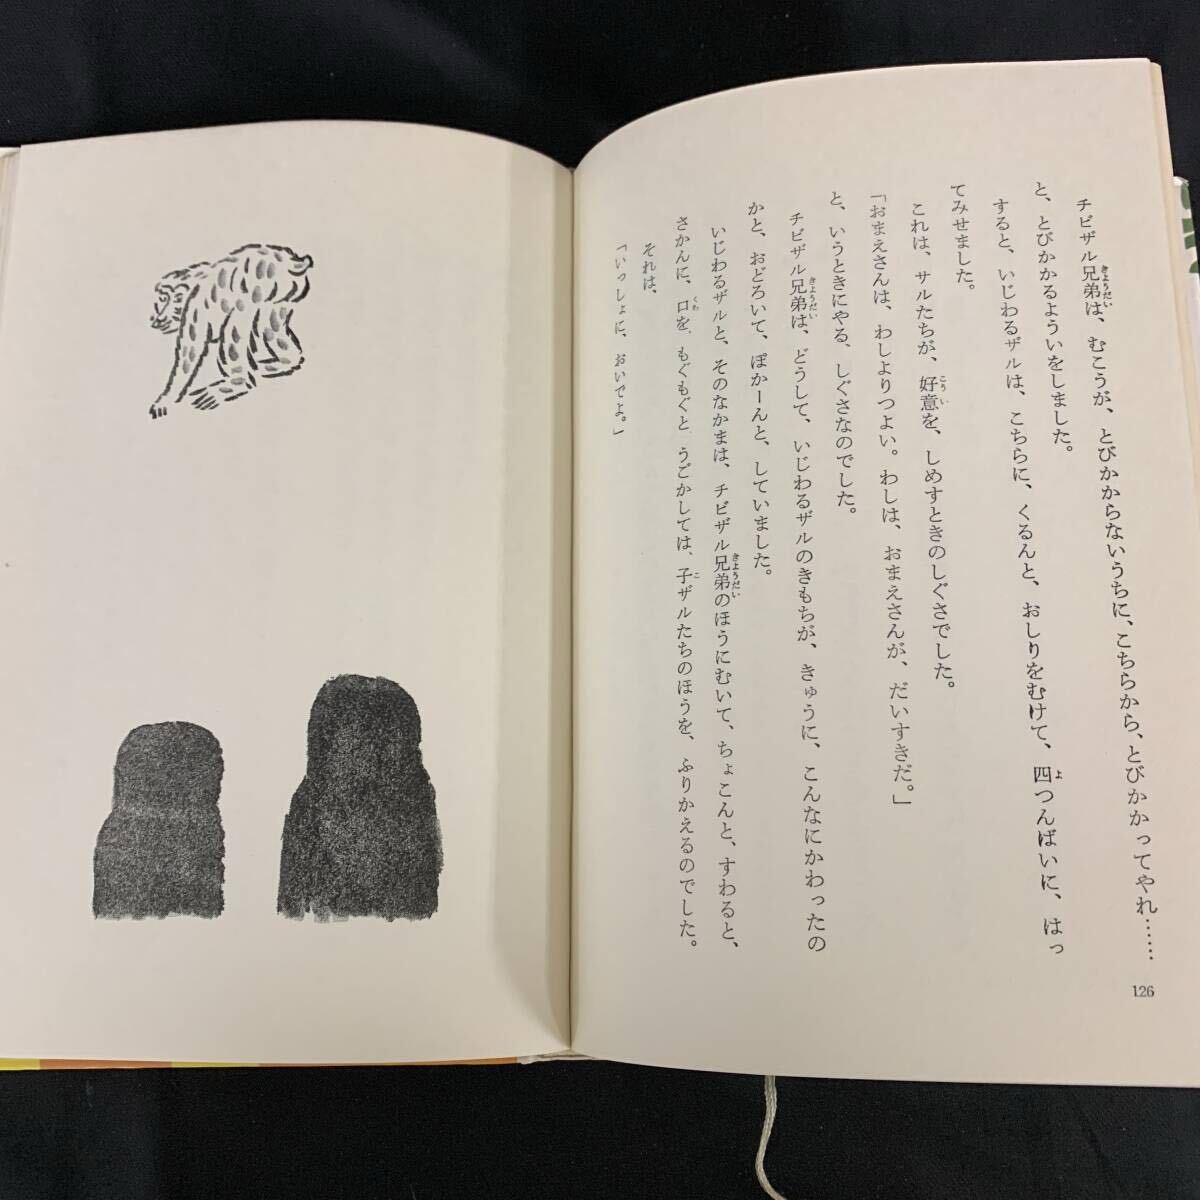 チビザル兄弟は、むこうが、とびかからないうちに、こちらから、とびかかってやれ……
と、とびかかるよういをしました。
すると、いじわるザルは、こちらに、くるんと、おしりをむけて、四つんばいに、はっ
てみせました。
これは、サルたちが、好意を、しめすときのしぐさでした。
「おまえさんは、わしよりつよい。わしは、おまえさんが、だいすきだ。」
と、いうときにやる、しぐさなのでした。
チビザル兄弟は、どうして、いじわるザルのきもちが、きゅうに、こんなにかわったの
かと、おどろいて、ぽかーんと、していました。
いじわるザルと、そのなかまは、チビザル兄弟のほうにむいて、ちょこんと、すわると、
さかんに、口を、もぐもぐと、うごかしては、子ザルたちのほうを、ふりかえるのでした。
それは、
「いっしょに、おいでよ。」
126